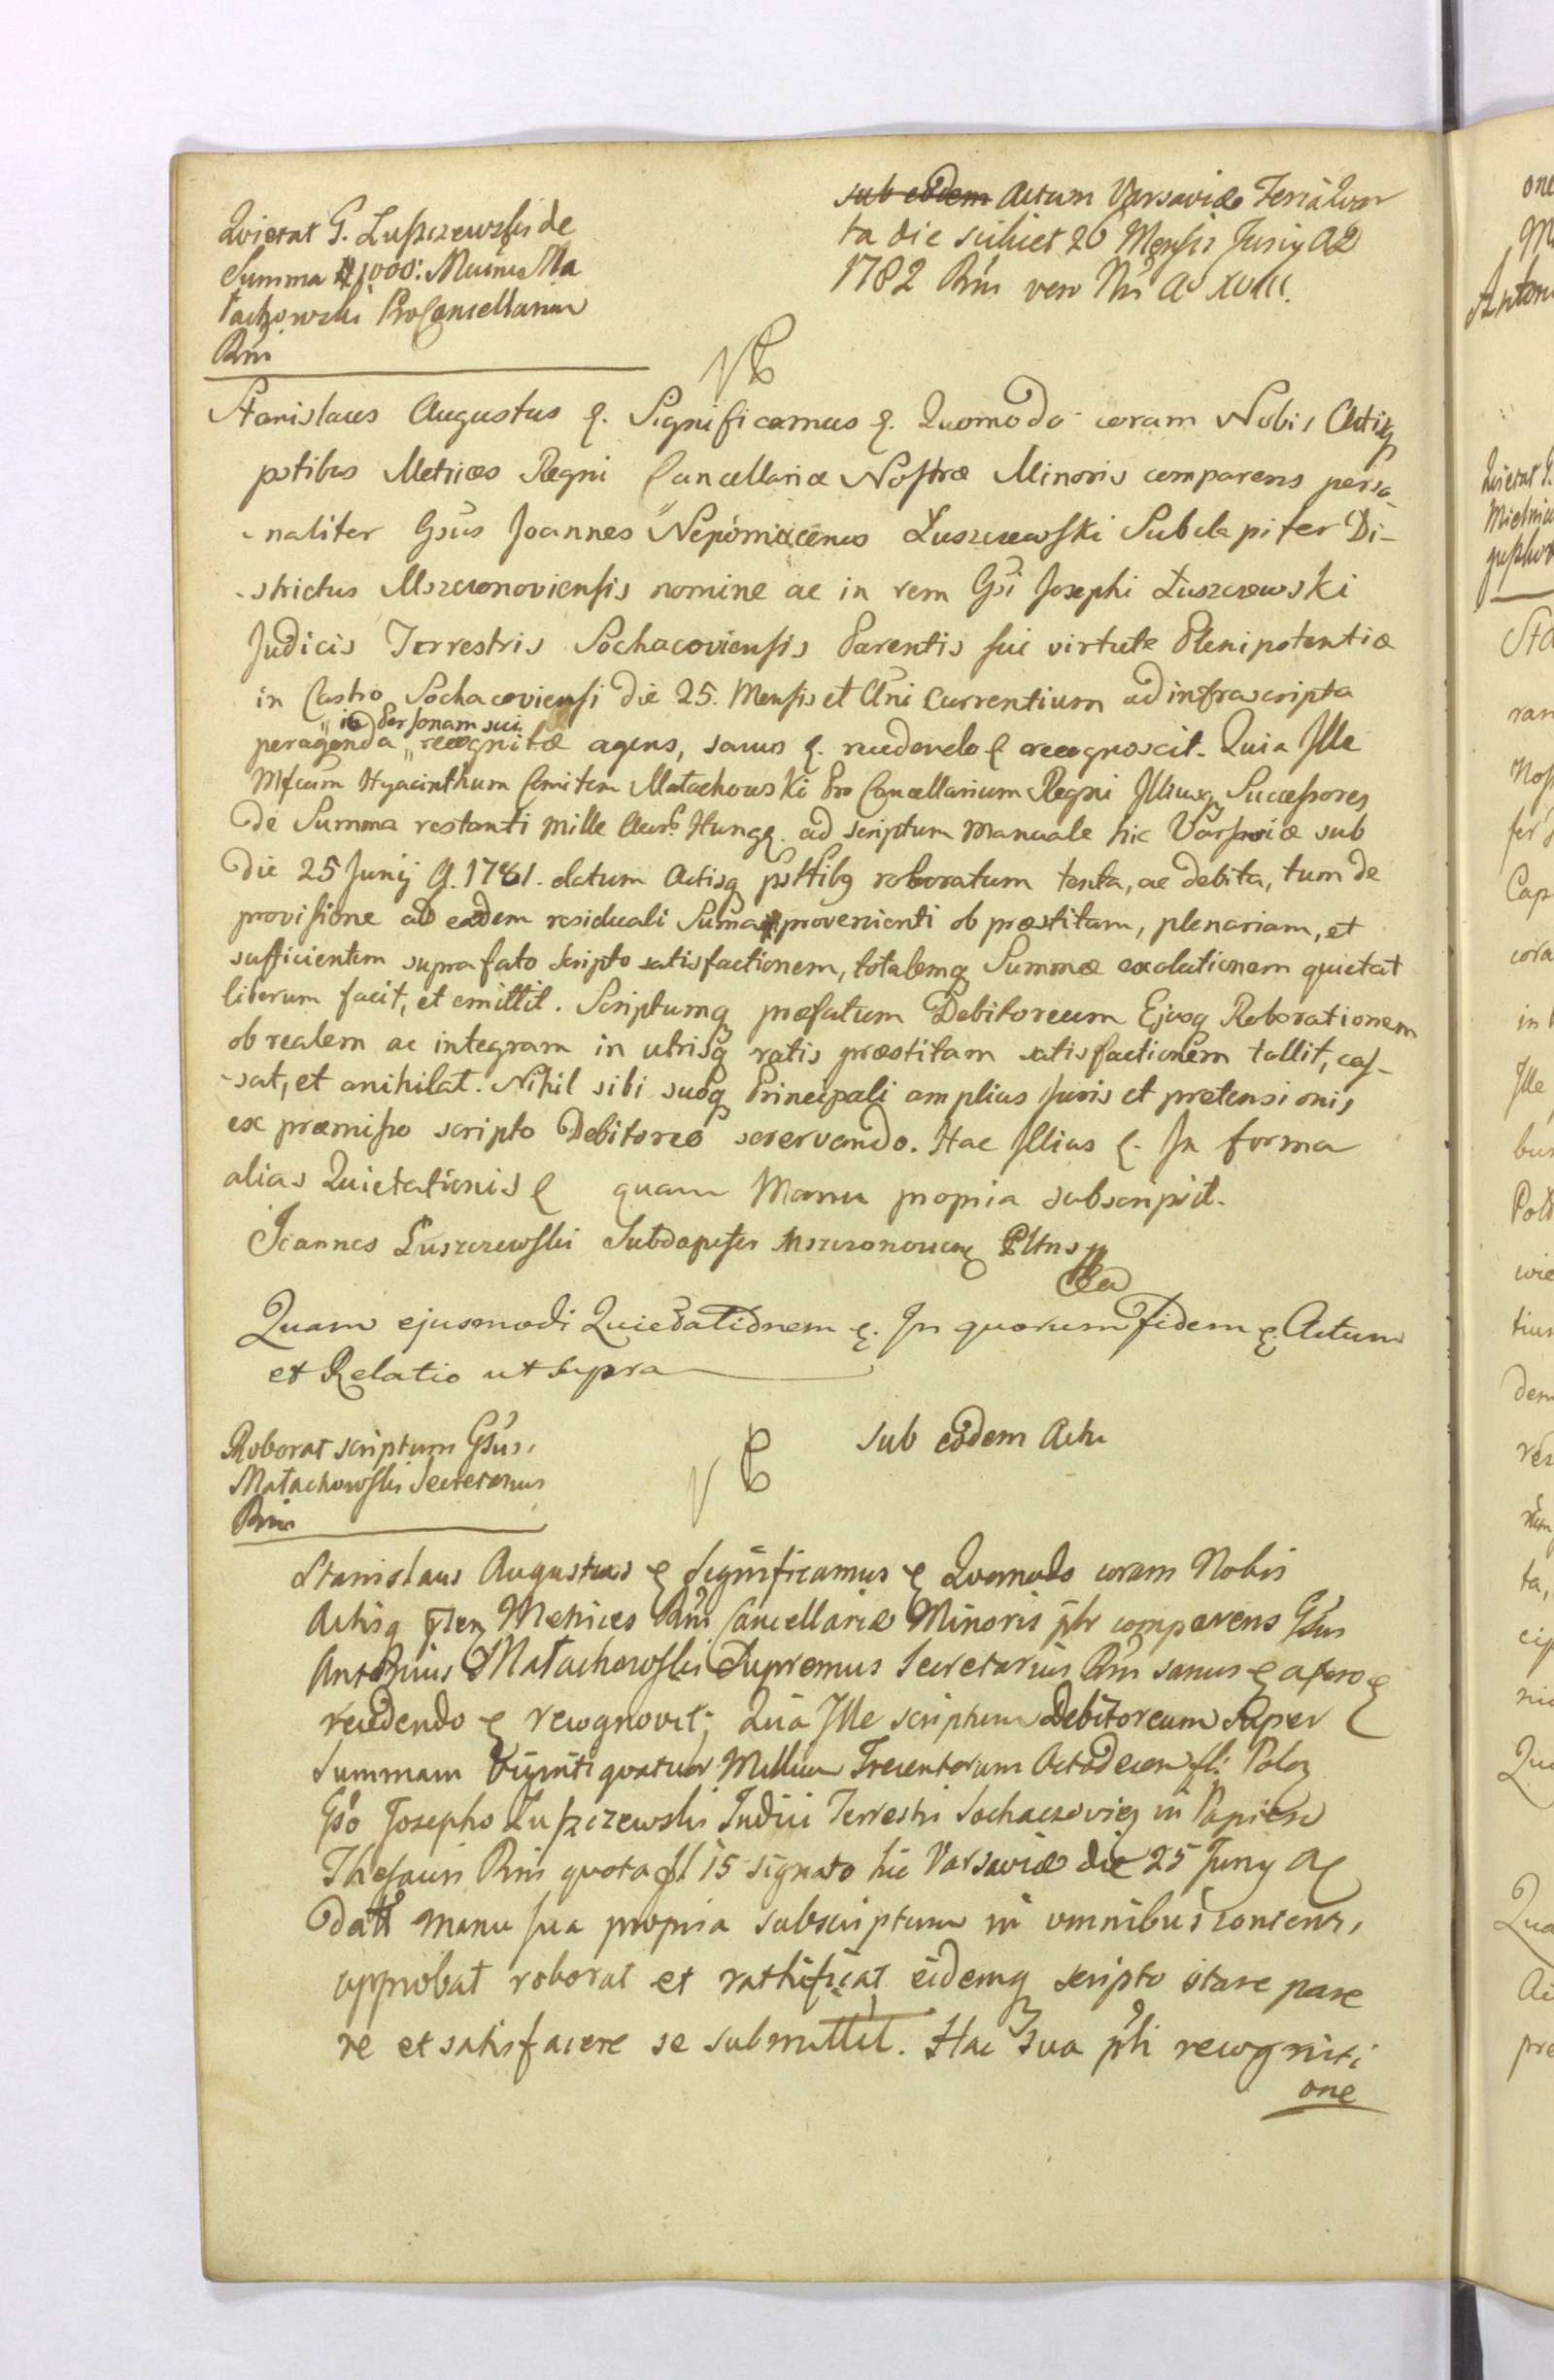 Quietat G. Luszczewski de
Summa # 1000: Mcum Ma
łachowski ProCancellarium
Rni
sub eodem Actum Varsaviæ Feria Quar
ta die scilicet 26 Mensis Junij A D
1782 Rni vero Nri Ao XVIII.
Stanislaus Augustus &. Significamus &. Quomodo coram Nobis Actisq
pntibus Metrices Regni Cancellariæ Nostræ Minoris comparens perso
-naliter Gsus Joannes Nepomucenus Łuszczewski Subdapifer Di-
-strictus Mszczonoviensis nomine ac in rem Gsi Josephi Łuszczewski
Judicis Terrestris Sochacoviensis Parentis sui virtute Plenipotentiæ
in Castro Sochacoviensi die 25. Mensis et Ani Currentium ad infrascripta
peragenda " in Personam sui " recognitæ agens, sanus &. recedendo & recognoscit. Quia Ille
Mfcum Hyacinthum Comitem Małachowski Pro Cancellarium Regni Illiusq Successores
De Summa restanti mille Aur. Hung. ad scriptum Manuale hic Varsaviæ sub
Die 25 Junij A. 1781. datum Actisq pnttibq roboratum tenta, ac debita, tum de
provisione ab eadem residuali Suma provenienti ob præstitam, plenariam, et
sufficientem suprafato scripto satisfactionem, totalemq Summæ exolutionem quietat
liberum facit, et emittit. Scriptumq præfatum Debitoreum Ejusq Roborationem
ob realem ac integram in utrisq ratis præstitam satisfactionem tollit, cas-
-sat, et anihilat. Nihil sibi suoq Principali amplius Juris et pretensionis
ex præmisso scripto Debitoreo reservando. Hac Illius &. In forma
alias Quietationis & quam Manu propria subscripsit.
Joannes Łuszczewski Subdapifer Mszczonovien
Quam ejusmodi Quietationem &. In quorum Fidem &. Actum
et Relatio ut supra
Roborat scriptum Gsus.
Małachowski Secretarius
Rni
Sub eodem Actu
Stanislaus Augustus & Significamus & Quomodo coram Nobis
Actisq Metrices Rni Cancellariæ Minoris plr comparens Gsus
Antonius Małachowski Supremus Secretarius Rni sanus &
recedendo & recognovit; Quia Ille scriptum Debitoreum Super
Summam Viginti quatuor Millium Trecentorum Octodecem fl: Pol
Gso Josepho Łuszczewski Judici Terrestri Sochaczovien in Papiero
Thesauri Rni quota fl 15 signato hic Varsaviæ die 25 Juny A
Datt Manu sua propria subscriptum in omnibus contentis,
approbat roborat et rathificat eidemq scripto stare pare
re et satisfacere se submittit. Hac sua pnti recogniti
one